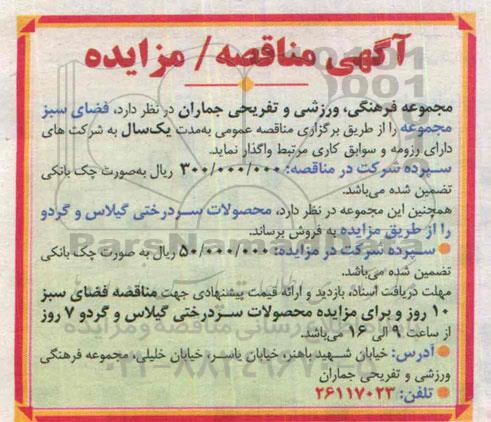 آگهی مناقصه / مزایده
مجموعه فرهنگی، ورزشی و تفریحی جماران در نظر دارد، فضای سبز
مجموعه را از طریق برگزاری مناقصه عمومی به‌مدت یک‌سال به شرکت های
دارای رزومه و سوابق کاری مرتبط واگذار نماید.
سپرده شرکت در مناقصه: ۳۰۰/۰۰۰/۰۰۰ ریال به‌صورت چک بانکی
تضمین شده می‌باشد.
همچنین این مجموعه در نظر دارد، محصولات سردرختی گیلاس و گردو
را از طریق مزایده به فروش برساند.
سپرده شرکت در مزایده: ۵۰/۰۰۰/۰۰۰ ریال به صورت چک بانکی
تضمین شده می‌باشد.
مهلت دریافت اسناد، بازدید و ارائه قیمت پیشنهادی جهت مناقصه فضای سبز
۱۰ روز و برای مزایده محصولات سردرختی گیلاس و گردو ۷ روز
از ساعت ۹ الی ۱۶ می‌باشد.
آدرس: خیابان شهید باهنر، خیابان یاسر، خیابان خلیلی، مجموعه فرهنگی
ورزشی و تفریحی جماران
تلفن: ۲۶۱۱۷۰۲۳
ParsNamadData